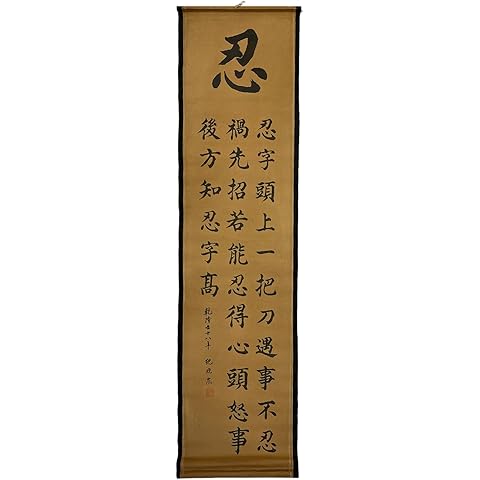 忍
忍字頭上一把刀遇事不忍
禍先招若能忍得心頭怒事
後方知忍字髙
乾隆五十八年 紀曉嵐